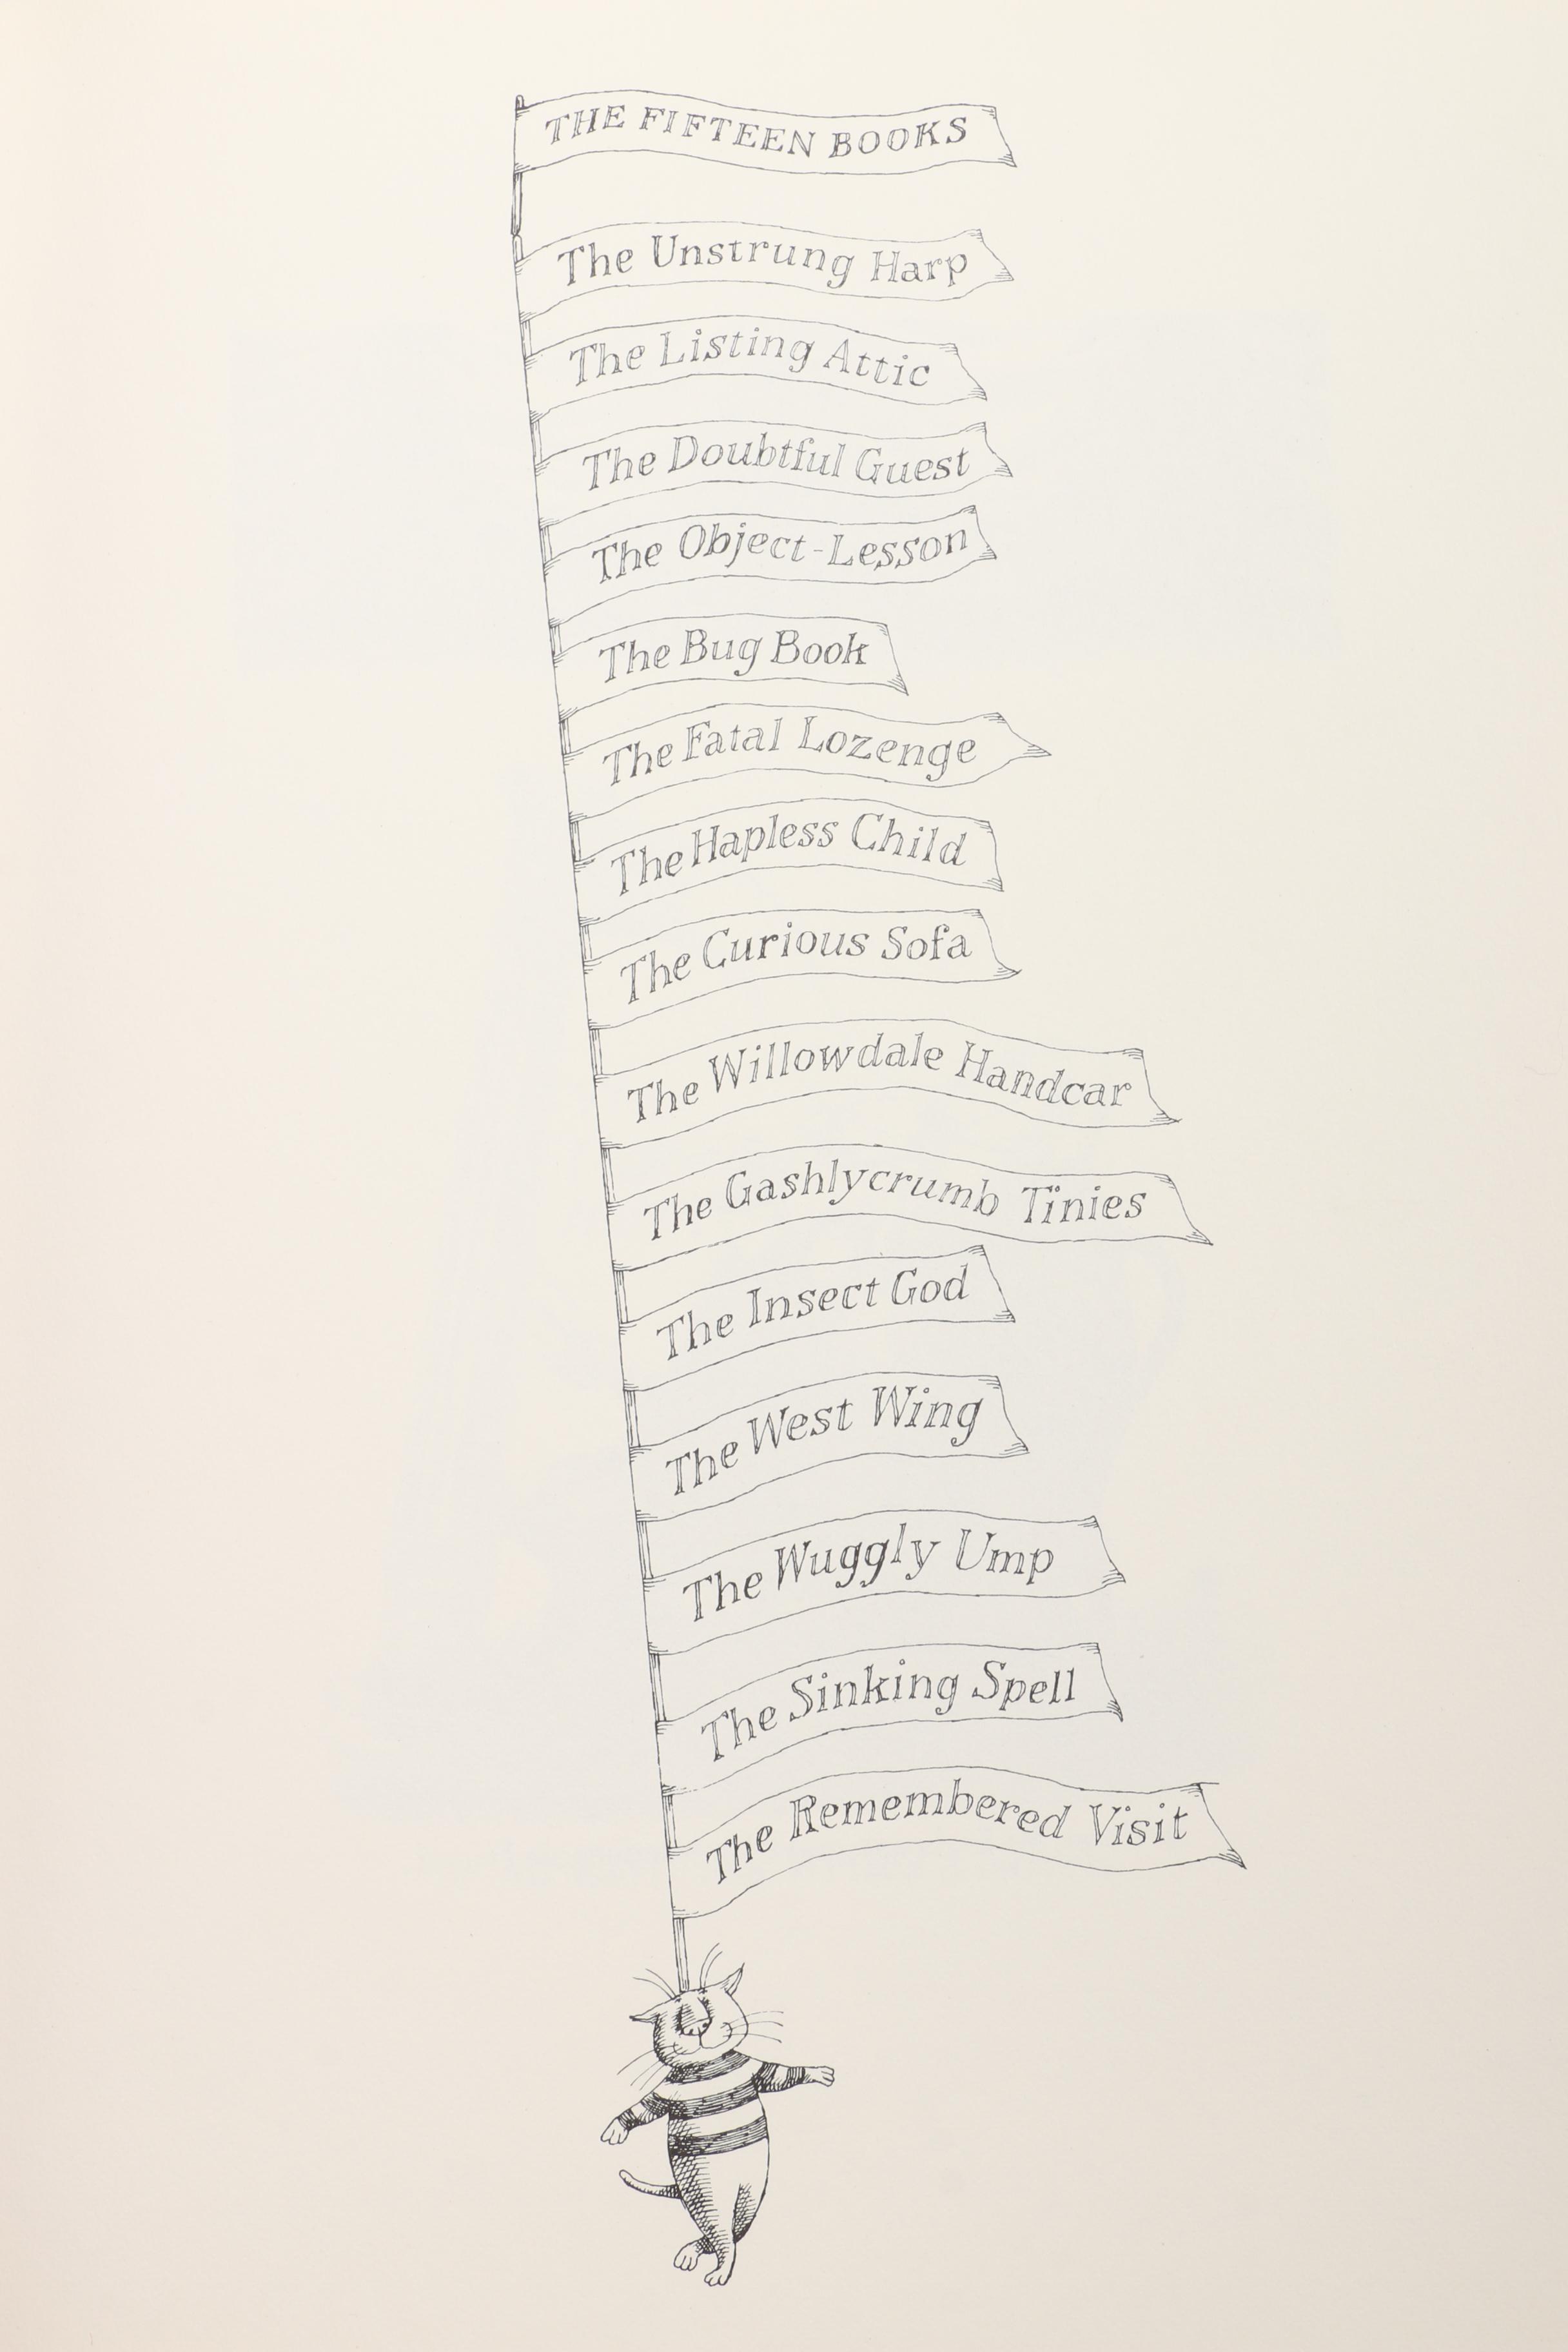 THE FIFTEEN BOOKS
The Unstrung Harp
The Listing Attic
The Doubtful Guest
The Object-Lesson
The Bug Book
The Fatal Lozenge
The Hapless Child
The Curious Sofa
The Willowdale Handcar
The Gashlycrumb Tinies
The Insect God
The West Wing
The Wuggly Ump
The Sinking Spell
The Remembered Visit